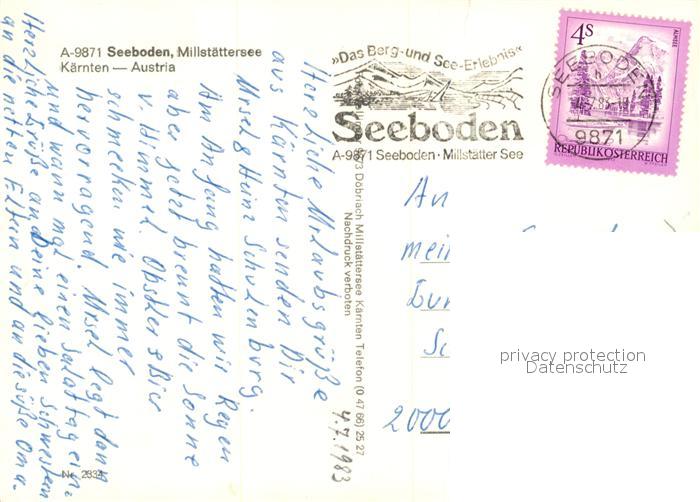 A-9871 Seeboden, Millstättersee
Kärnten — Austria
»Das Berg- und See-Erlebnis«
Seeboden
A-9871 Seeboden · Millstätter See
4S
ALMSEE
SEEBODEN
9871
REPUBLIK ÖSTERREICH
Herzliche Urlaubsgrüße
aus Kärnten senden Dir
Ursel & Heinz Schulenburg.
Am Anfang hatten wir Regen
aber jetzt brennt die Sonne
v. Himmel. Obstler & Bier
schmecken wie immer
hervorragend. Ursel legt dann
und wann mal einen Salattag ein.
Herzliche Grüße an Deine lieben Schwestern
an die netten Eltern und an die süße Oma.
4.7.1983
9873 Döbriach Millstättersee Kärnten Telefon (0 47 66) 25 27
Nachdruck verboten
An
2000
privacy protection
Datenschutz